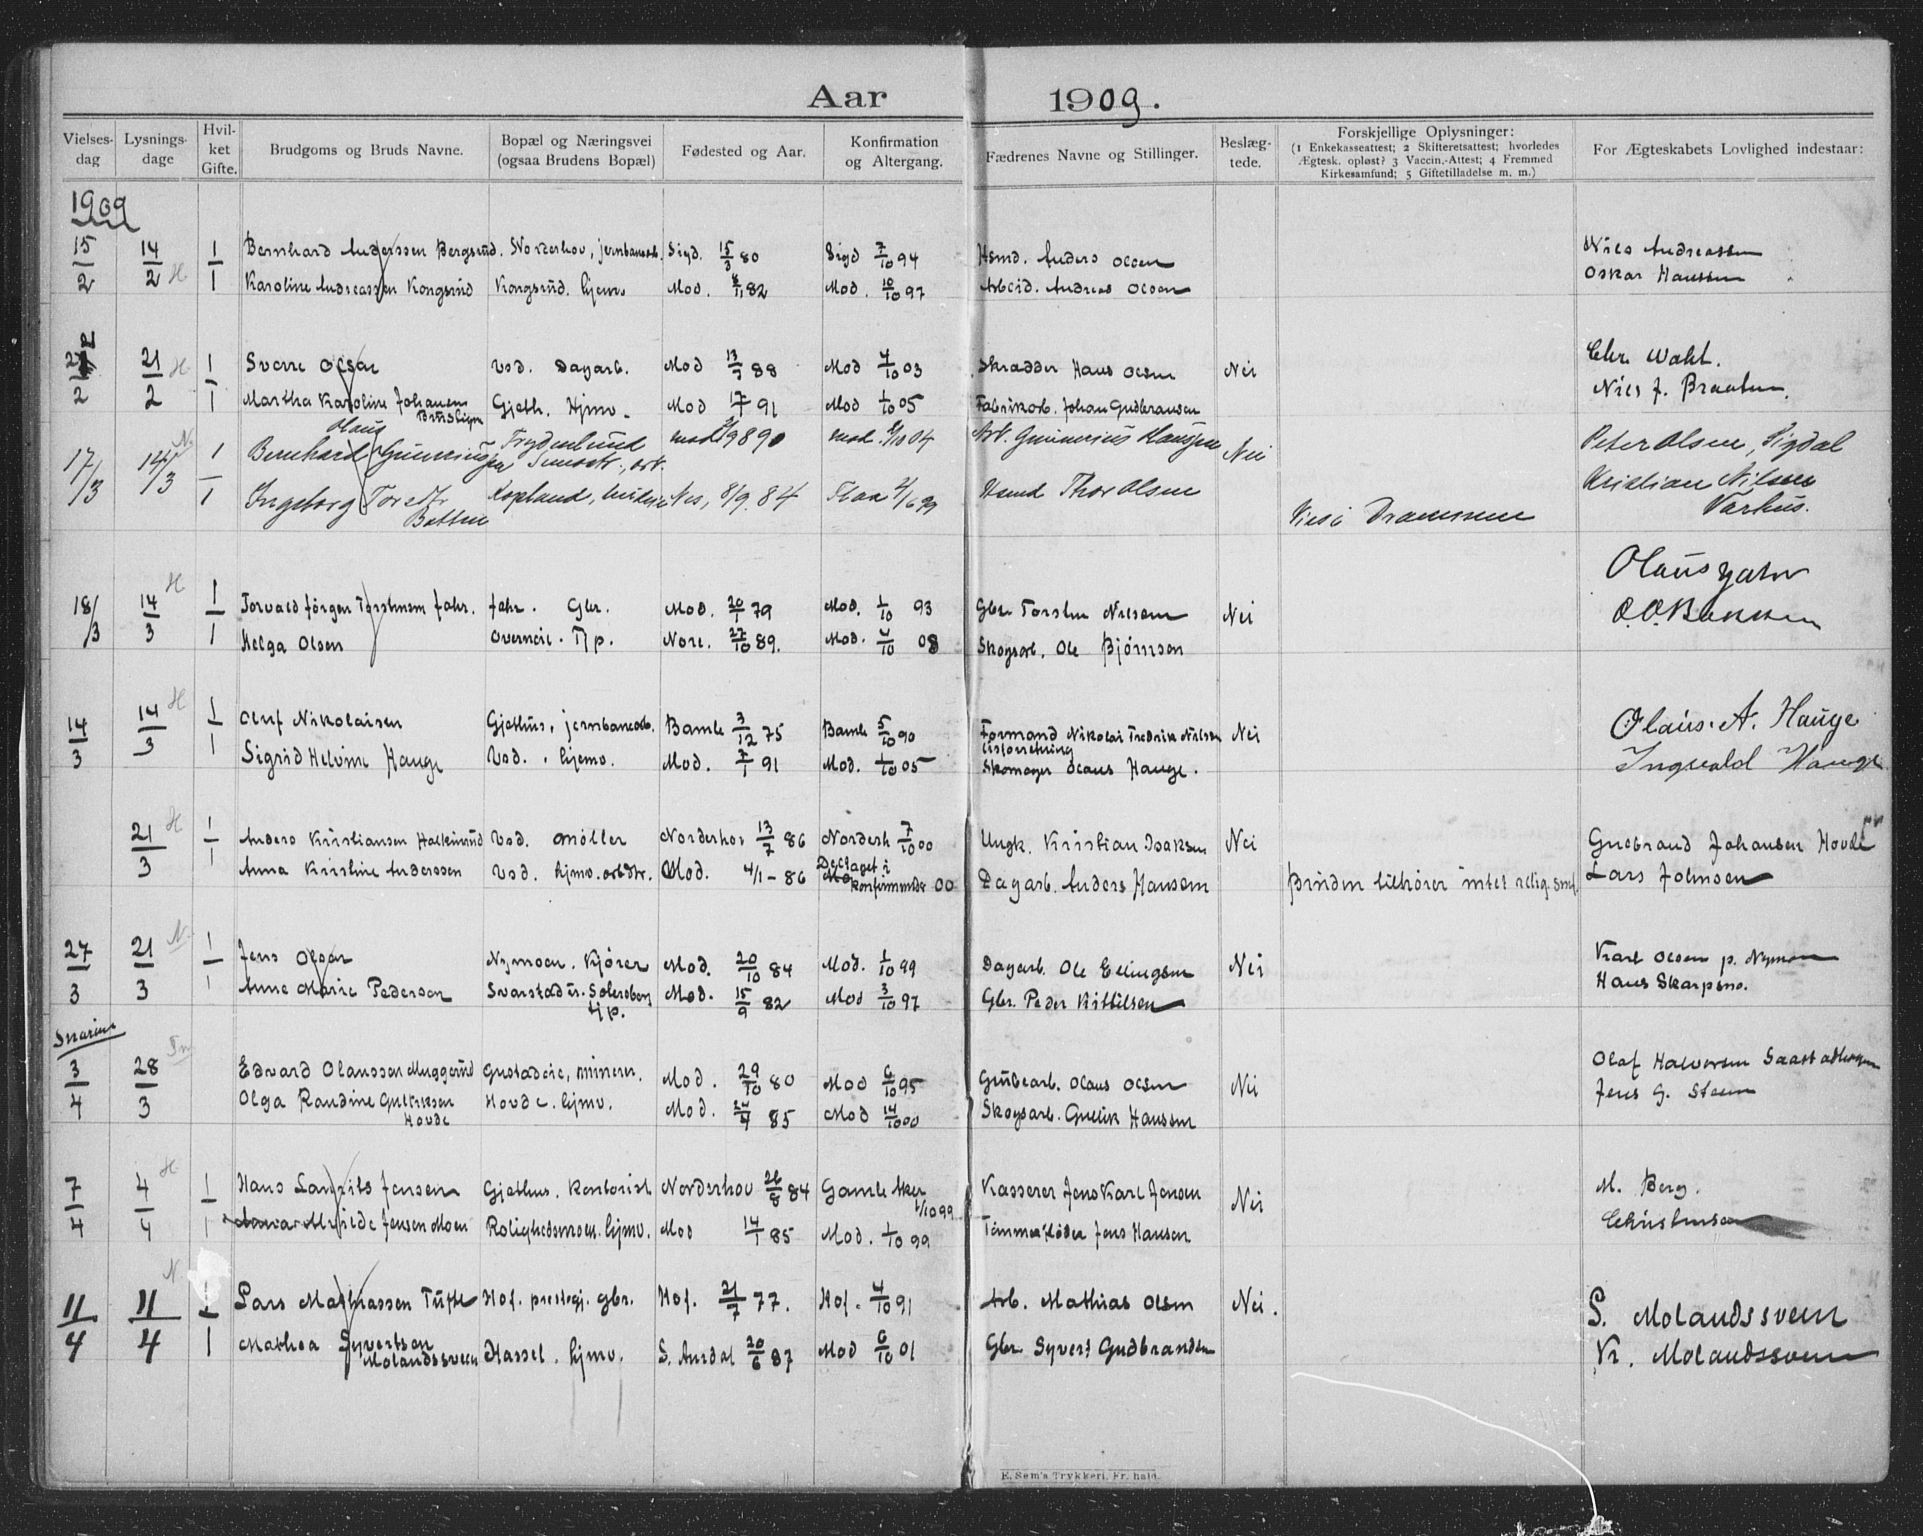 Aar 1909.
Vielses-dag Lysnings-dage Hvil-ket Gifte. Brudgoms og Bruds Navne. Bopæl og Næringsvei (ogsaa Brudens Bopæl) Fødested og Aar. Konfirmation og Altergang. Fædrenes Navne og Stillinger. Beslæg-tede. Forskjellige Oplysninger: (1 Enkekasseattest; 2 Skifteretsattest; hvorledes Ægtesk. opløst? 3 Vaccin.-Attest; 4 Fremmed Kirkesamfund; 5 Giftetilladelse m. m.) For Ægteskabets Lovlighed indestaar:
1909
15/2 14/2 H 1 Bernhard Anderssen Bergsrud. Norderhov, jernbanearb. Sigd. 15/3 80 Sigd 7/10 94 Hsmd. Anders Olsen Nils Andreassen
1 Karoline Andreassen Kongsrud Kongsrud. hjemv. Mod. 8/11 82 Mod. 10/10 97 Arbeid. Andreas Olsen Oskar Hanssen
21/2 H 1 Sverre Olsen Vod. Dagarb. Mod 13/7 88 Mod 4/10 03 Skrædder Hans Olsen Nei Chr. Wahl.
1 Martha Karoline Johansen Gjeth. Hjmv. Mod 17/7 91 Mod 1/10 05 Fabrikarb. Johan Gudbransen Nils J. Braaten.
17/3 14/3 N. 1 Bernhard Olaus Gunneriussen Frydenlund Arb. Gunnerius Hansen Nei Peter Olsen, Sigdal
1 Ingeborg Torsdtr Batten Kopland, Nes, 8/9. 84 Flaa 4/6 99 Hsmd Thor Olsen Vies i Drammen Kristian Nilsen Varhus.
18/3 14/3 H 1 Torvald Jørgen Torstensen Jahr. Jahr. Gbr. Mod. 20/1 79 Mod. 1/10 93 Gbr. Torsten Nilsen Nei Olaus Jahr
1 Helga Olsen Overneie. Tjp. Nore. 27/10 89. Mod. 4/10 08 Skogsarb. Ole Bjørnson
14/3 14/3 H 1 Oluf Nikolaisen Gjethus, jernbanearb. Bamle 3/12 75 Bamle 5/10 90 Formand Nikolai Fredrik Nilsen Nei Olaus. A. Hauge
1 Sigrid Helvine Hauge Vod. hjemv. Mod. 7/1 91 Mod. 1/10 05 Skomager Olaus Hauge. Ingvald Hauge
21/3 H 1 Anders Kristiansen Halkinrud Vod. Møller Norderhov 13/7 86 Norderh 7/10 00 Ungk. Kristian Isaksen Nei Gudbrand Johansen Hovde
1 Anna Kristine Anderssen Vod. hjmv. arbdtr. Mod. 4/1 – 86 Deltaget i konfirmunder 00 Dagarb. Anders Hansen Bruden tilhører intet relig. smf. Lars Johnsen
27/3 21/3 N. 1 Jens Olsen Nymoen. Kjører Mod. 20/10 84 Mod. 1/10 99 Dagarb. Ole Ellingsen Nei Karl Olsen p. Nymoen
1 Anne Marie Pedersen Svarstadtr. Solersberg tjp. Mod. 15/9 82 Mod 3/10 97 Gbr. Peder Kittilsen Hans Skarpsno.
Snarum
3/4 28/3 Edvard Olaussen Muggerud Gustadeie, minerer. Mod. 29/10 80 Mod 6/10 95 Grubearb. Olaus Olsen Nei Olaf Halvorsen
Olga Randine Gulliksen Hovde Hovde. hjmv. Mod. 24/4 85 Mod 14/10 00 Skogsarb. Gullik Hansen Jens G. Steen
7/4 4/4 H 1 Hans Laurits Jensen Gjethus. Kontorist Norderhov 26/8 84 Gamle Aker 1/10 99 Kasserer Jens Karl Jensen Nei M. Berg.
1 Jensen Moen Rolighedsmoen. hjmv. Mod 14/1 85 Mod. 1/10 99 Tømmerfløder Jens Hansen Christensen
11/4 11/4 N. 1 Lars Mathiassen Tufte Hof. prestegj. gbr. Hof. 21/7 77. Hof. 4/10 91 Arb. Mathias Olsen Nei. S. Molandssveen
1 Mathea Syvertsen Molandssveen Hassel. hjmv. S. Aurdal 20/6 87 Mod 6/10 01 Gbr. Syvert Gudbrandsen Kr. Molandssveen
E. Sem's Trykkeri, Fr. hald.